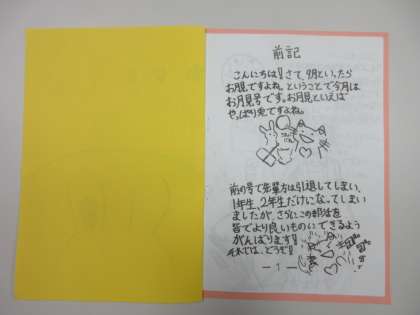 前記
こんにちは!! さて、9月といったら
お月見ですよね。ということで今月は
お月見号です。お月見といえば
やっぱり兎ですよね。
前の号で先輩方は引退してしまい、
1年生、2年生だけになってしまい
ましたが、さらにこの部活を
皆でより良いものにできるよう
がんばります!!
それでは、どうぞ!!
— 1 —